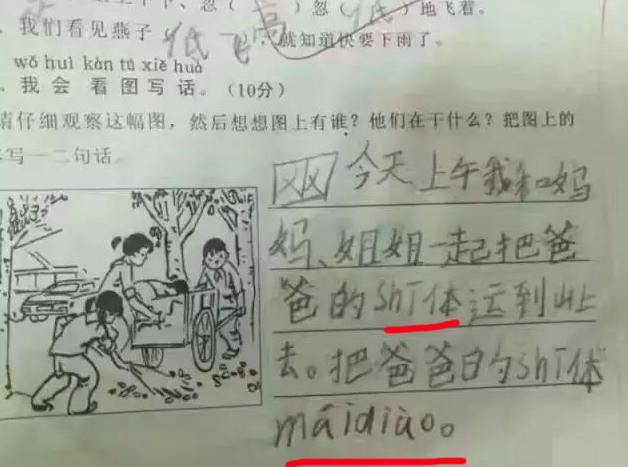 忽（ 高 ）忽（ 低 ）地飞着。
、我们看见燕子 低飞 ，就知道快要下雨了。
wǒ huì kàn tú xiě huà
、我 会 看 图 写 话。（10分）
请仔细观察这幅图，然后想想图上有谁？他们在干什么？把图上的
写一二句话。
今天上午我和妈
妈、姐姐一起把爸
爸的shī体运到山上
去。把爸爸的shī体
máidiào。